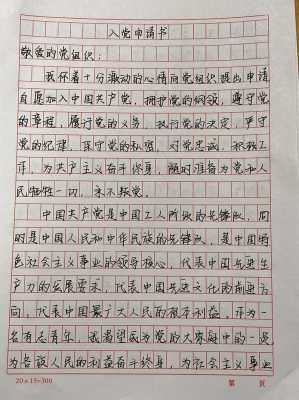 入党申请书
敬爱的党组织:
我怀着十分激动的心情向党组织提出申请
自愿加入中国共产党,拥护党的纲领,遵守党
的章程,履行党的义务,执行党的决定,严守
党的纪律,保守党的秘密,对党忠诚,积极工
作,为共产主义奋斗终身,随时准备为党和人
民牺牲一切,永不叛党。
中国共产党是中国工人阶级的先锋队,同
时是中国人民和中华民族的先锋队,是中国特
色社会主义事业的领导核心,代表中国先进生
产力的发展要求,代表中国先进文化的前进方
向,代表中国最广大人民的根本利益。作为一
名有志青年,我渴望成为党的大家庭中的一员,
为各族人民的利益奋斗终身,为社会主义事业
20×15=300 第 页